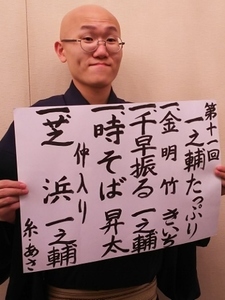 第十一回
一之輔たっぷり
一、金明竹 きいち
一、千早振る 一之輔
一、時そば 昇太
仲入り
一、芝浜 一之輔
糸あさ